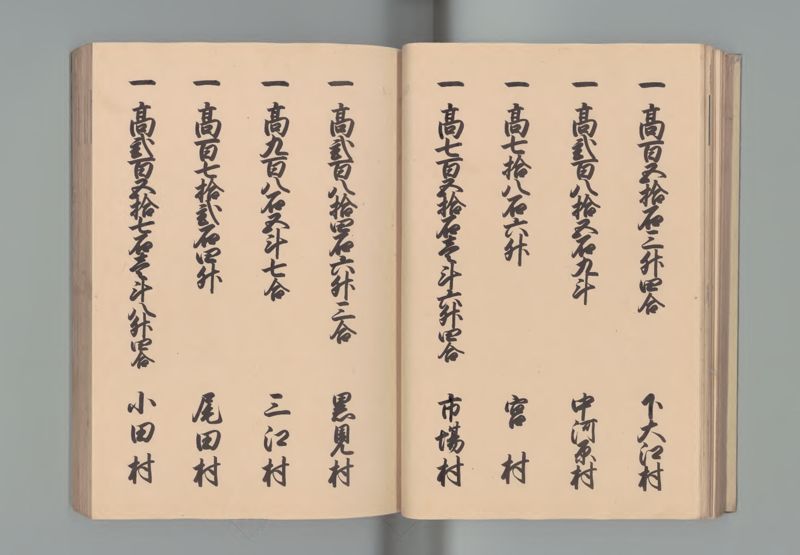 一 高百五拾石三升四合 下大江村
一 高弐百八拾五石九斗 中河原村
一 高七拾八石六升 宮村
一 高七百五拾石壱斗六升四合 市場村
一 高弐百八拾四石六升三合 黒見村
一 高九百八石五斗七合 三江村
一 高百七拾弐石四升 尾田村
一 高弐百五拾七石壱斗八升四合 小田村